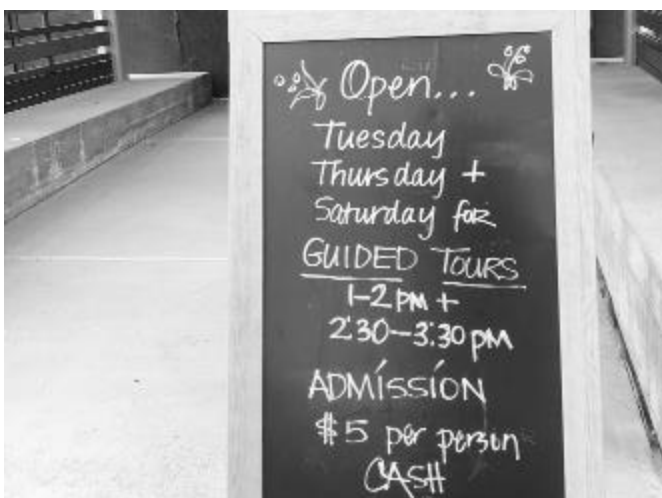 Open...
Tuesday
Thursday +
Saturday for
GUIDED TOURS
1-2 PM +
2:30-3:30 PM
ADMISSION
$5 per person
CASH